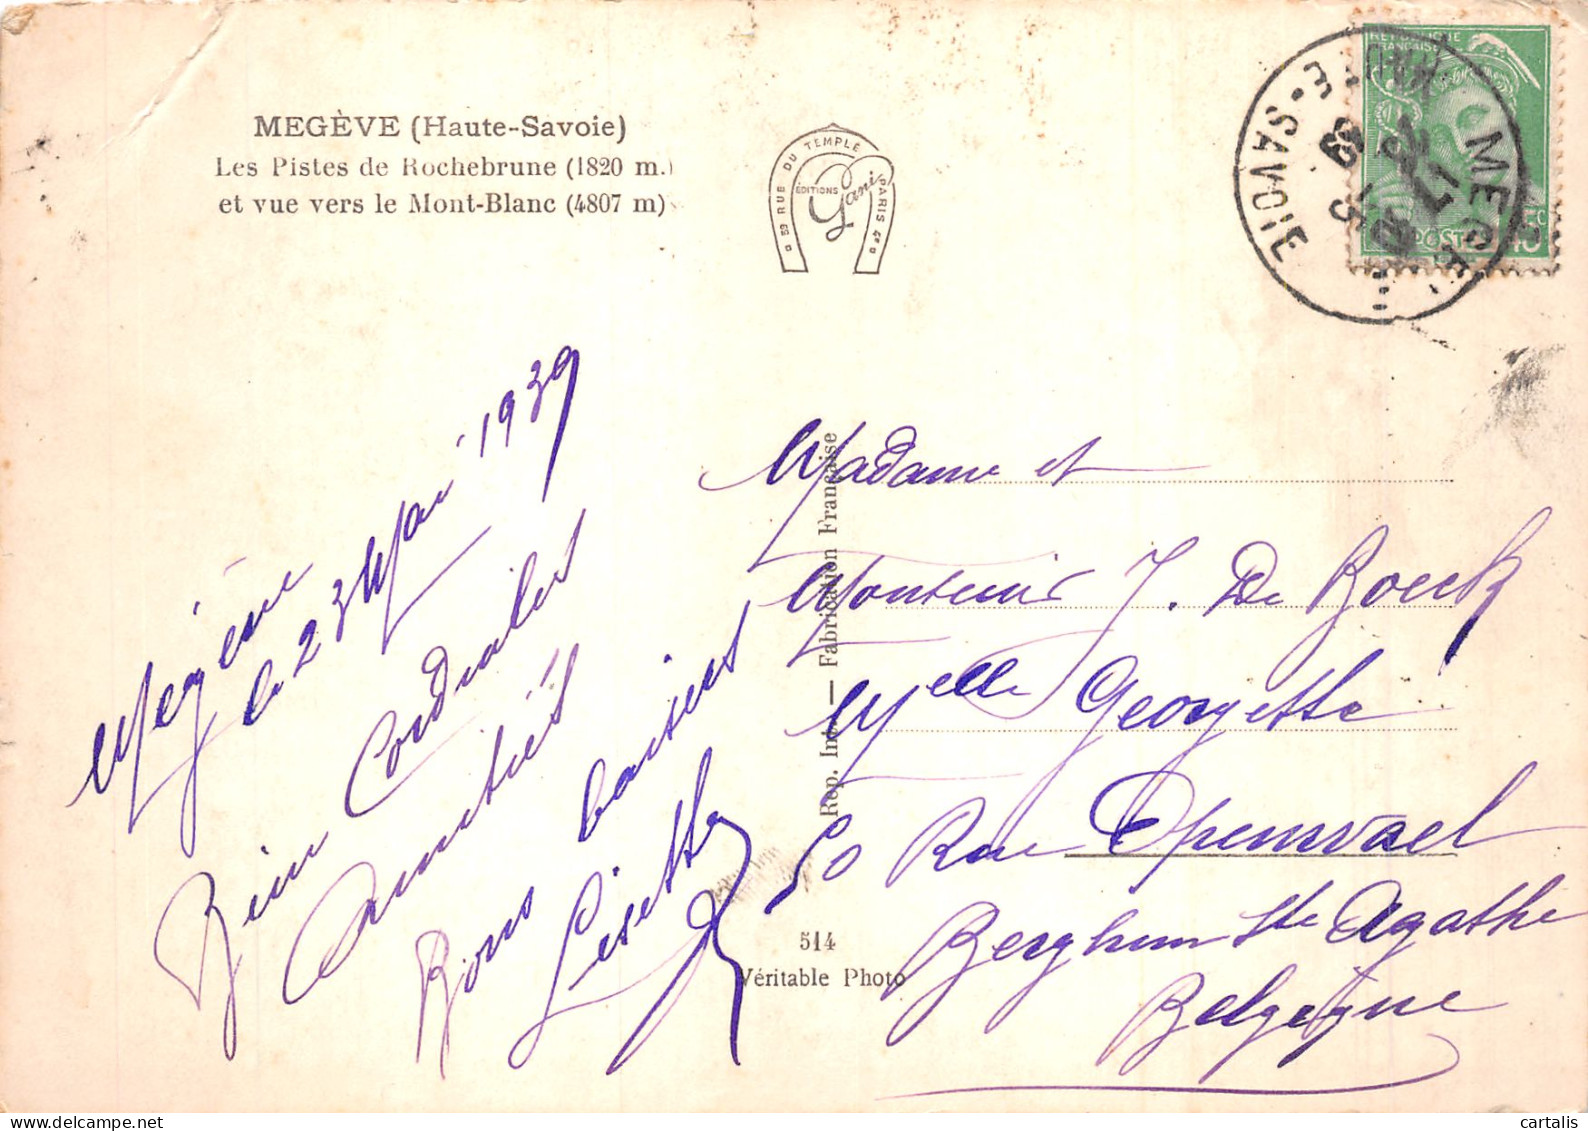 MEGÈVE (Haute-Savoie)
Les Pistes de Rochebrune (1820 m.)
et vue vers le Mont-Blanc (4807 m)
59 RUE DU TEMPLE PARIS 4e
EDITIONS
Gani
REPUBLIQUE
FRANÇAISE
POSTES
MEGEVE
HTE-SAVOIE
17
5
Megève
le 23 Mai 1939
Bien Cordiales
Amitiés
Bons baisers
Lisette
Rep. Int. — Fabrication Française
Madame et
Monsieur J. De Boeck
Melle Georgette
50 Rue Openvael
Berghem Ste Agathe
Belgique
514
Véritable Photo
cartalis